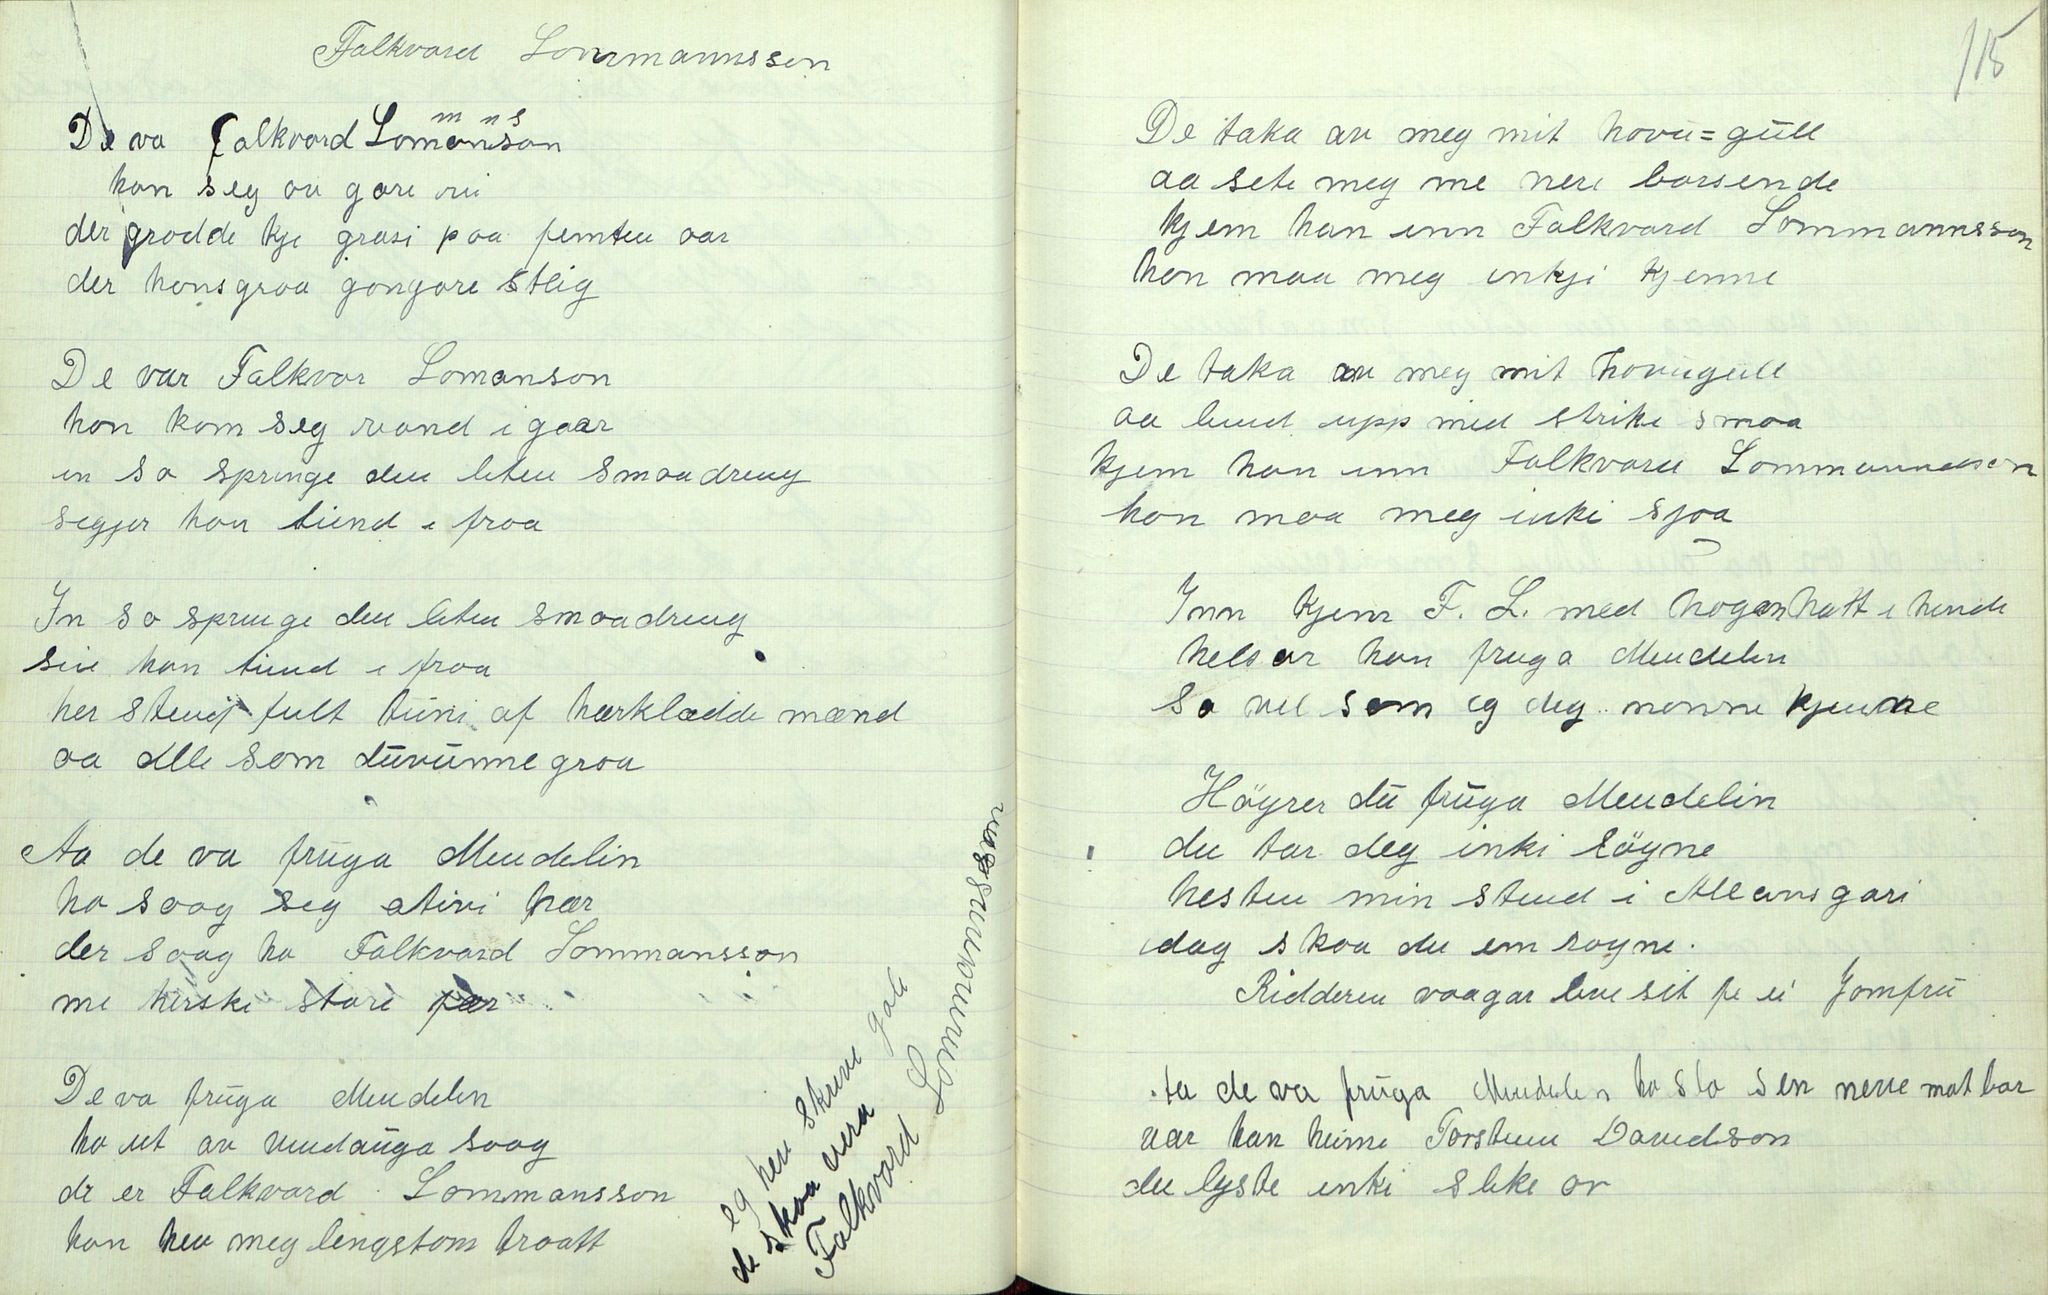 Falkvard Lommannsson
De va falkvard Lomanson
m n s
han seg av gare rei
der grodde kje grasi paa femten aar
der hans graa gangare steig
De var Falkvor Lomanson
han kom seg riand i gaar
in so springe den liten smaadreng
segjer han tiend i fraa
In so springe den liten smaadreng
sei han tiend i fraa
her stend fult tuni af hærklædde mænd
aa alle som duvunne graa
Aa de va fruga Mendelin
ho saag seg ativi hær
der saag ho Falkvard Lommansson
me herski store fær
De va fruga Mendelin
ho ut av vindauga saag
de er Falkvard Lommansson
han hev meg lengstom traatt
eg hev skrive gale
de skaa vera
Falkvard Lommannsson
115
De taka av meg mit hovu=gull
aa sete meg me nere borsende
kjem han inn Falkvard Lommannsson
han maa meg inkji kjenne
De taka av meg mit hovugull
aa bind upp med strike smaa
kjem han inn Falkvard Lommannsson
han maa meg inki sjaa
Inn kjem F. L. med hogan hatt i hende
helsar han fruga Mendelin
so vel som eg deg monne kjenne
Höyrer du fruga Mendelin
du tar deg inki löyne
hesten min stend i Alleansgari
idag skaa du em röyne.
Ridderen vaagar live sit fe ei Jomfru
Aa de va fruga Mendelin ho sto sen neve mot bor
var han heime Torstein Davidson
du lyste inki slike or